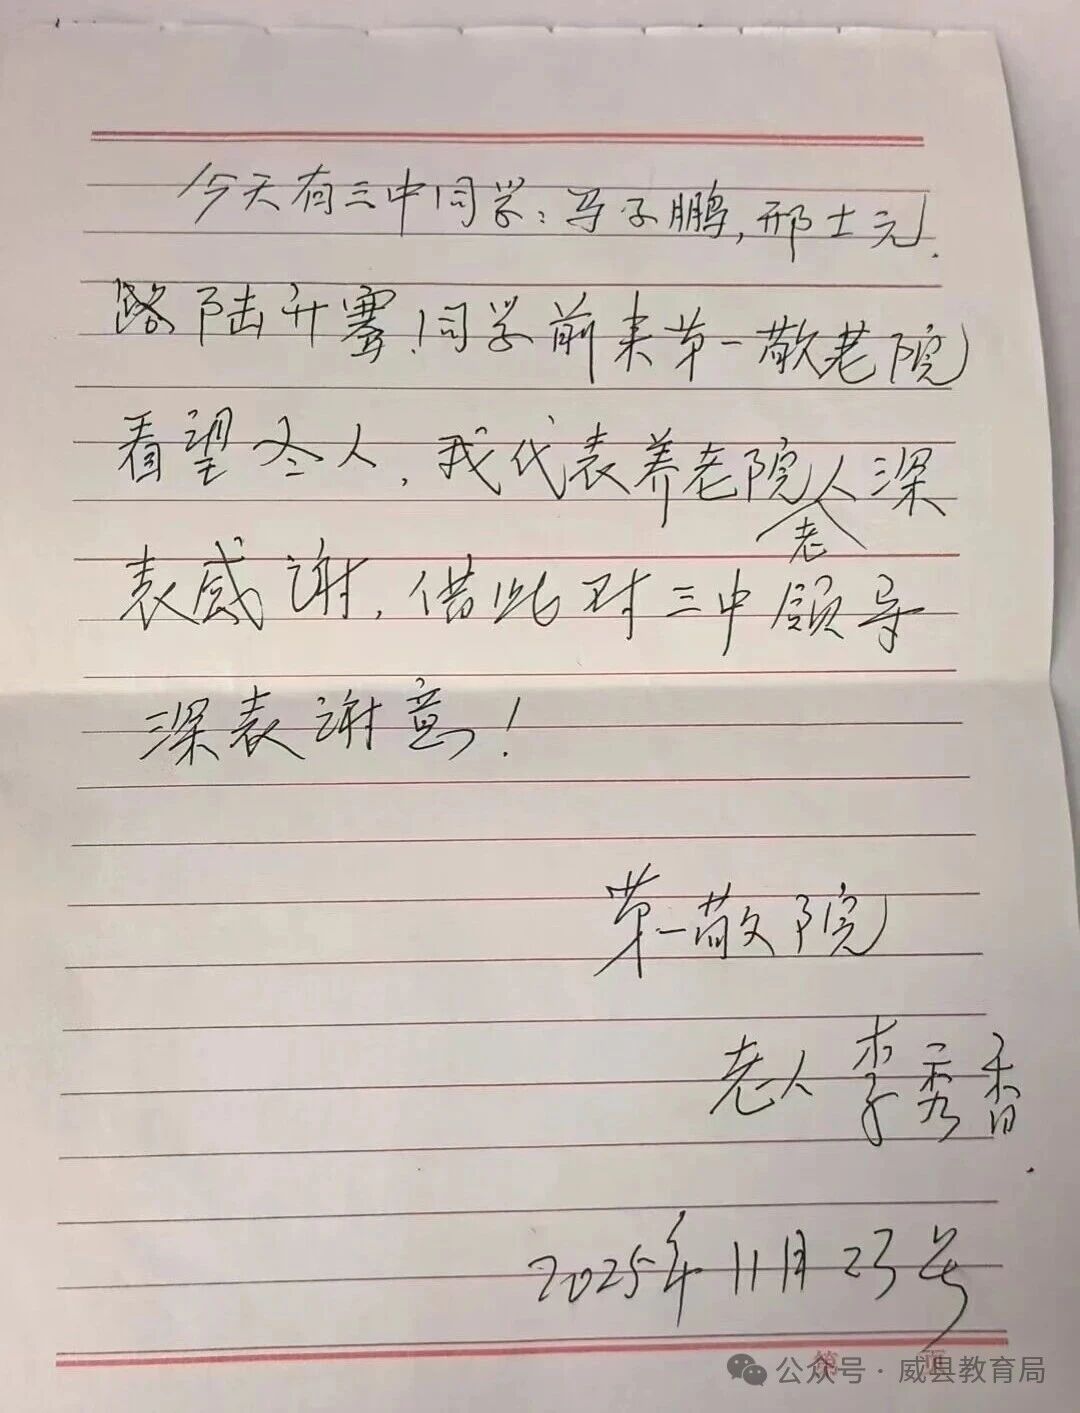 今天有三中同学：马子鹏，邢士元.
路陆升骞！同学前来第一敬老院
看望冬人，我代表养老院老人深
表感谢，借此对三中领导
深表谢意！
第一敬院
老人 李秀香
2025年11月23号
第 页
公众号·威县教育局